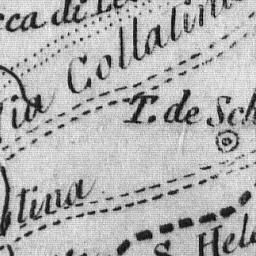 cca di
Via Collatina
T. de Sch
tina
S. Hele